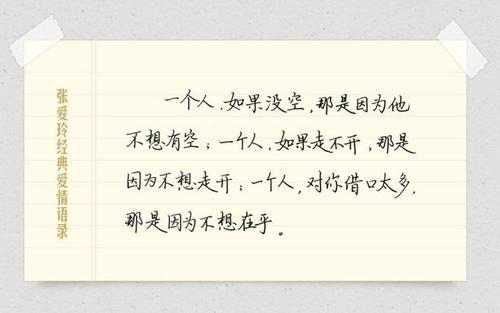 张爱玲经典爱情语录
一个人,如果没空,那是因为他
不想有空;一个人,如果走不开,那是
因为不想走开;一个人,对你借口太多,
那是因为不想在乎。